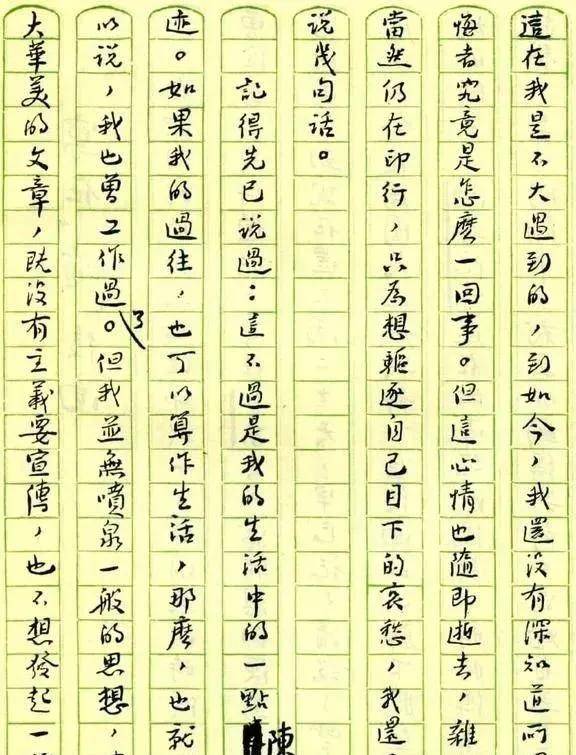 這在我是不大遇到的，到如今，我還没有深知道所
悔者究竟是怎麽一回事。但這心情也隨即逝去，雜
當然仍在印行，只為想驅逐自己目下的哀愁，我還
说幾句話。
記得先已说過：這不過是我的生活中的一點陳
迹。如果我的過往，也可以算作生活，那麽，也就
以说，我也曾工作過了。但我並無噴泉一般的思想，
大華美的文章，既没有主義要宣傳，也不想發起一